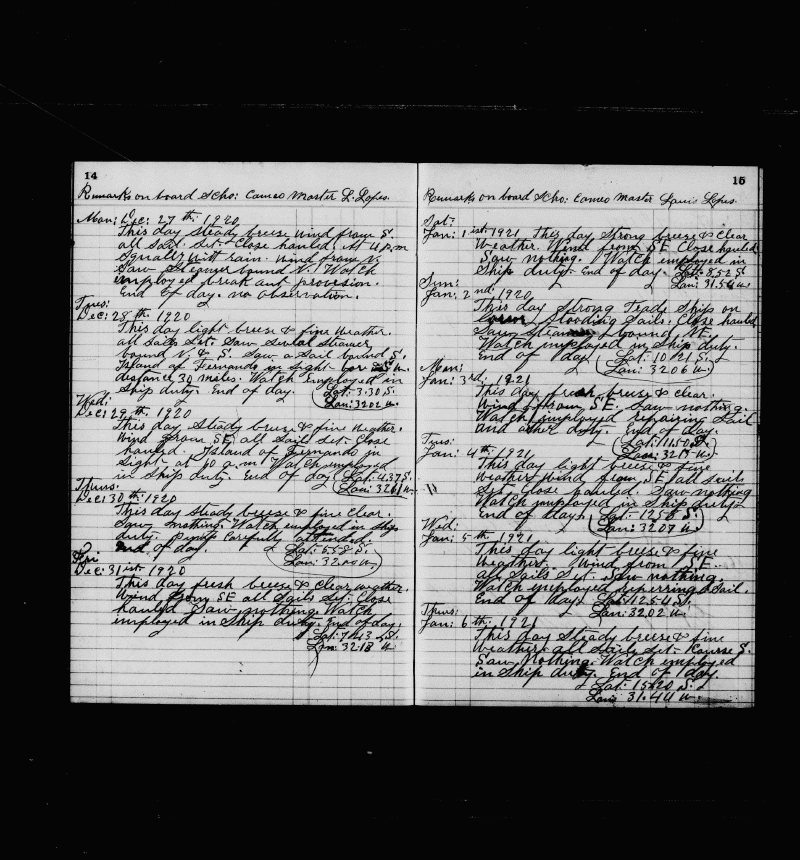 14
Remarks on board Scho: Cameo Master L. Lopes.
Mon: Dec: 27 th. 1920
This day steady breeze wind from S.
all Sail Set. Close hauled. At 4 p.m
Squally with rain. wind from
Saw Steamer bound N. Watch
employed break out provision.
End of day. no observation.
Tues:
Dec: 28 th 1920
This day light breeze & fine weather.
all Sails Set. Saw several Steamer
bound N. & S. Saw a Sail bound S.
Island of Fernando in Sight bor
distance 30 miles. Watch employed in
Ship duty. End of day. Lat: 3.30 S.
Lon: 3202 W.
Wed:
Dec: 29 th. 1920
This day Steady breeze & fine weather.
Wind from SE, all Sail Set. Close
hauled. Island of Fernando in
Sight at 10 a.m. Watch employed
in Ship duty. End of day. Lat: 4.37 S.
Lon: 3261 W.
Thurs:
Dec: 30 th. 1920
This day Steady breeze & fine Clear.
Saw nothing. Watch employed in Ship
duty. Pump Carefully attended.
End of day. Lat: 6.58 S.
Lon: W.
Fri
Dec: 31 st. 1920
This day fresh breeze & Clear weather.
Wind from SE all Sails Set. Close
hauled Saw nothing. Watch
employed in Ship duty. End of day
Lat: 7.43 S.
Lon: 32.18 W
15
Remarks on board Scho: Cameo Master Louis Lopes.
Sat:
Jan: 1 st. 1921 This day Strong breeze & Clear
Weather. Wind from SE. Close hauled
Saw nothing. Watch employed in
Ship duty. End of day. Lat: 8.52 S.
Lon: 31.54 W
Sun:
Jan: 2 nd. 1920
This day Strong Trade Ship on
flooding Sails. Close hauled
Saw Steamer bound NE.
Watch employed in Ship duty.
End of day Lat: 10 21 S.
Lon: 3206 W.
Mon:
Jan: 3 rd. 1921
This day fresh breeze & clear.
Wind from SE. Saw nothing.
Watch employed repairing Sail
and other duty. End of day.
Lat: 1150 S.
Lon: 3217 W.
Tues:
Jan: 4 th. 1921
This day light breeze & fine
Weather wind from SE all sails
Set. Close hauled. Saw nothing
Watch employed in Ship duty
End of day. Lat: 1258 S.
Lon: 3207 W
Wed:
Jan: 5 th. 1921
This day light breeze & fine
Weather. Wind from SE.
all Sails Set. Saw nothing.
Watch employed repairing a Sail.
End of day. Lat: 1254 S.
Lon: 3202 W
Thurs:
Jan: 6 th. 1921
This day Steady breeze & fine
Weather all Sails Set. Kourse S.
Saw Nothing. Watch employed
in Ship duty. End of day.
Lat: 15 20 S.
Lon: 31.44 W.